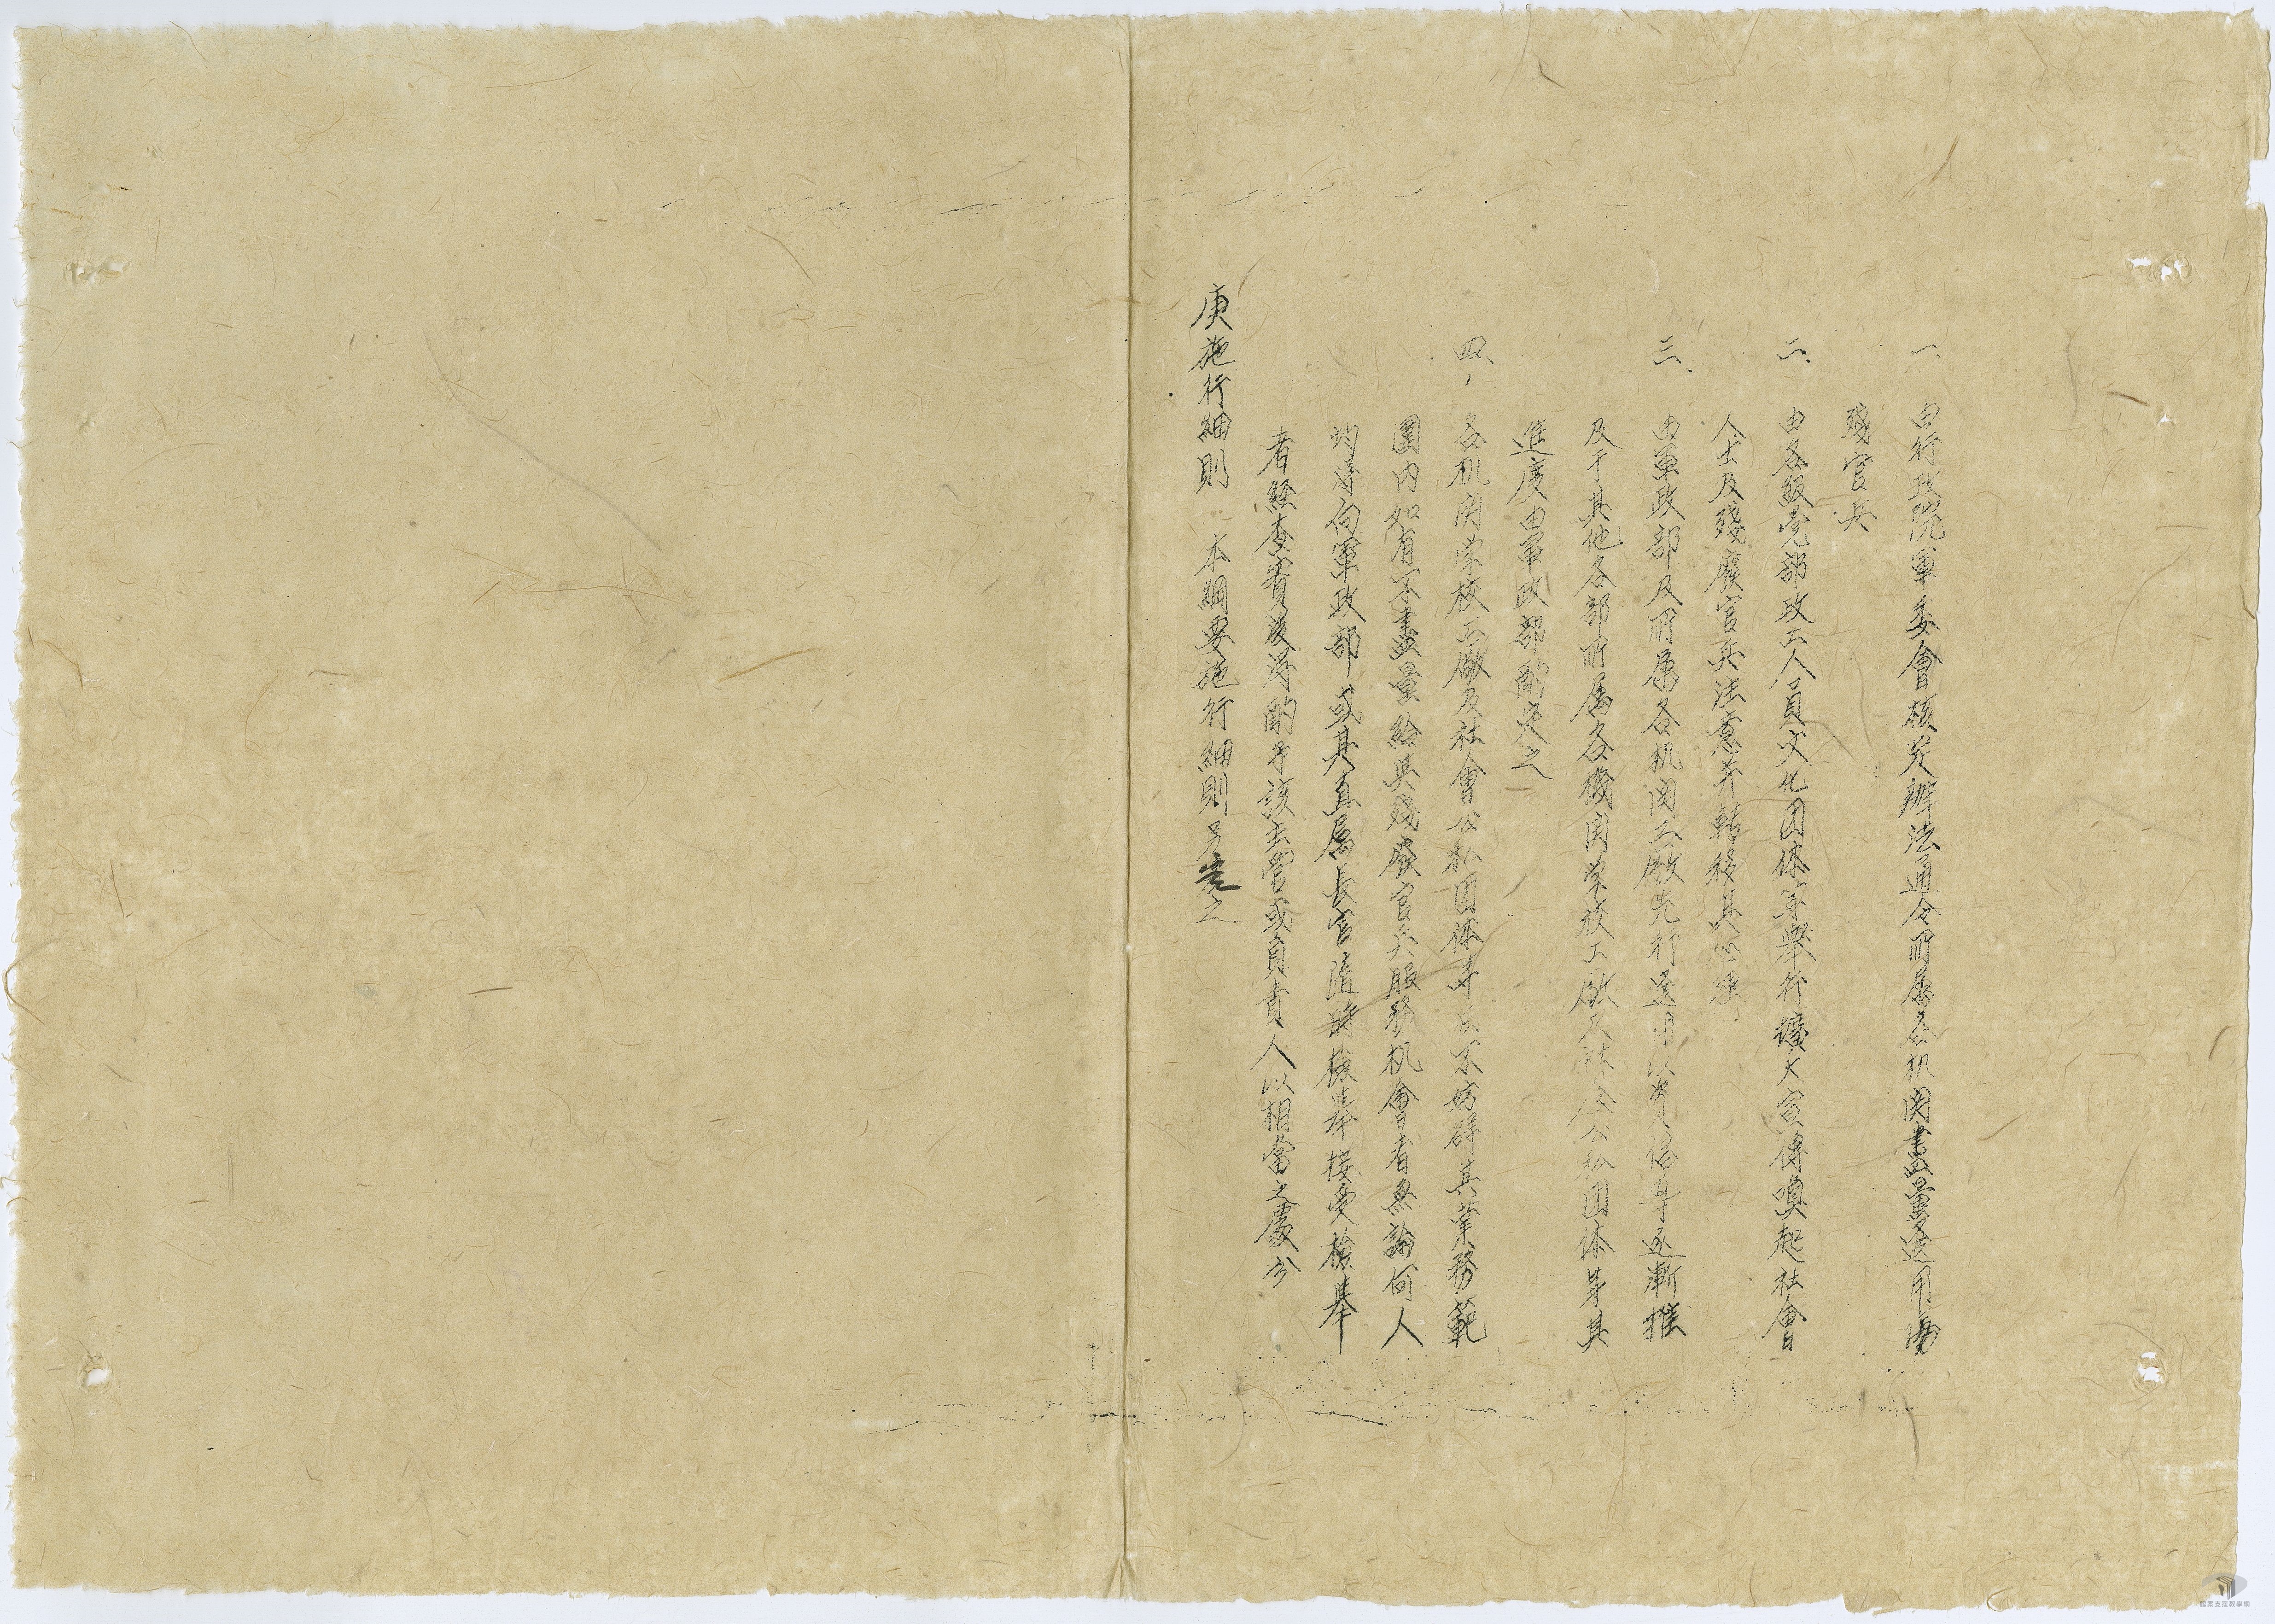 一、由行政院軍委會核定辦法通令所属各机関盡量選用傷
殘官兵
二、由各級党部政工人員文化团体等舉行擴大宣傳喚起社會
人士及殘廢官兵注意并轉移其心理
三、由軍政部及所属各机関工廠先行選用以資倡导逐漸推
及于其他各部所属各機関学校工廠及社会公私团体等其
進度由軍政部酌定之
四、各机関学校工廠及社會公私团体等在不妨碍其業務範
圍内如有不盡量給與殘廢官兵服務机會者無論何人
均得向軍政部或其直属長官隨時檢舉接受檢舉
者經查實後得酌予該主管或負責人以相當之處分
庚施行細則 本綱要施行細則另定之
國家文獻教學網